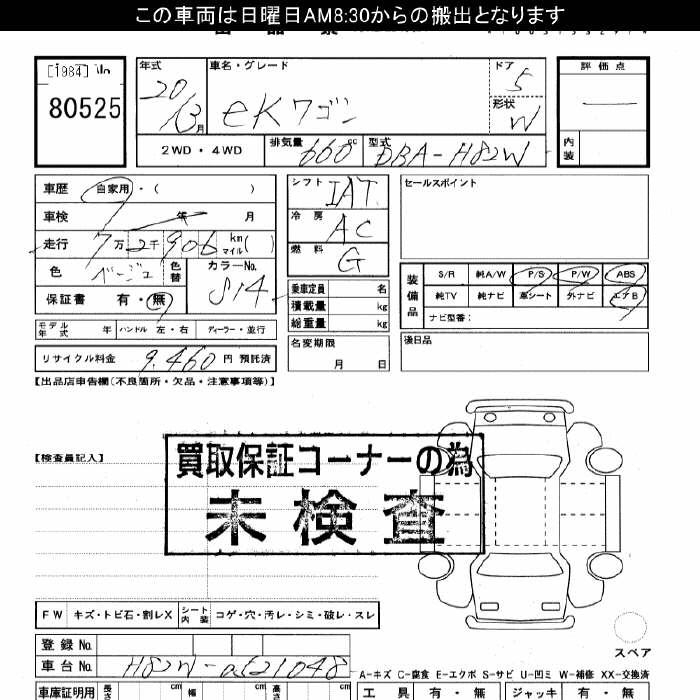 この車両は日曜日AM8:30からの搬出となります
[1984]
80525
年式 車名・グレード ドア 評価点
20/3月 eKワゴン 5
形状 W
2WD・4WD 排気量 660cc 型式 DBA-H82W 内装
車歴 自家用・( )
車検 年 月
走行 7万2千906 km マイル( )
色 ベージュ 色替 カラーNo. S14
保証書 有・無
モデル年式 年 ハンドル 左・右 ディーラー・並行
リサイクル料金 9,460円 預託済
シフト IAT
冷房 AC
燃料 G
乗車定員 名
積載量 kg
総重量 kg
名変期限
月 日
セールスポイント
装備品
S/R 純A/W P/S P/W ABS
純TV 純ナビ 革シート 外ナビ エアB
ナビ型番:
後日品
【出品店申告欄(不良箇所・欠品・注意事項等)】
【検査員記入】
買取保証コーナーの為
未検査
FW キズ・トビ石・割レX シート内装 コゲ・穴・汚レ・シミ・破レ・スレ
スペア
登録No.
車台No. H82W-
A-キズ C-腐食 E-エクボ S-サビ U-凹ミ W-補修 XX-交換済
車庫証明用 長さ cm 幅 cm 高さ cm
工具 有・無 ジャッキ 有・無